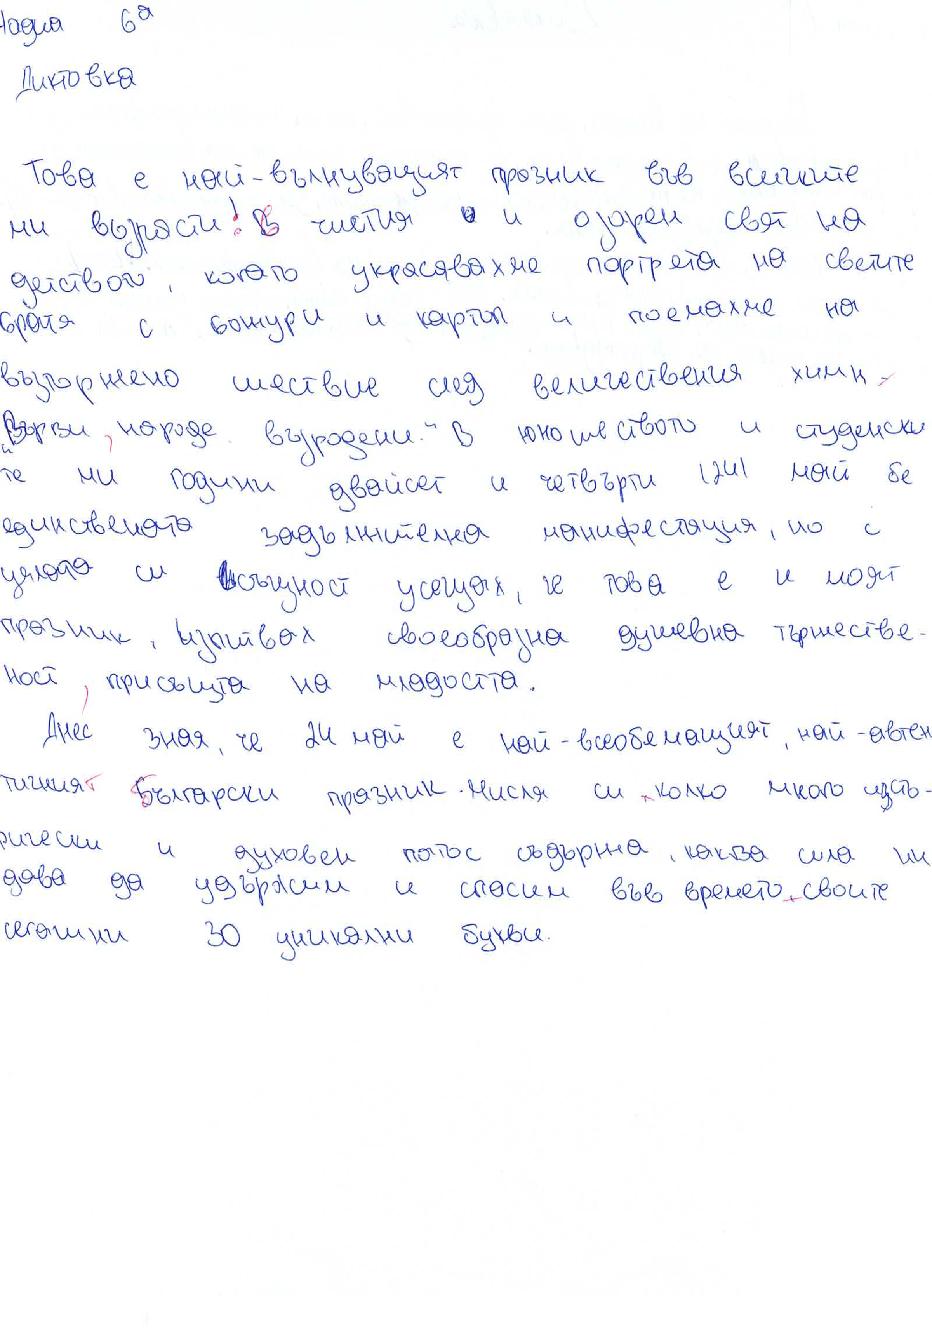 Надя 6а
Диктовка
Това е най-вълнуващият празник във всичките
ми възрасти! В чистия и озарен свят на
детството, когато украсявахме портрета на светите
братя с божури и картоп и поемахме на
възторжено шествие след величествения химн
„Върви, народе възродени." В юношеството и студенски
те ми години двайсет и четвърти (24) май бе
единствената задължителна манифестация, но с
цялата си същност усещах, че това е и моят
празник, изпитвах своеобразна душевна тържестве-
ност, присъща на младостта.
Днес зная, че 24 май е най-всеобемащият, най-автен
тичният български празник. Мисля си колко много исто-
рически и духовен патос съдържа, каква сила ни
дава да удържим и спасим във времето своите
сегашни 30 уникални букви.